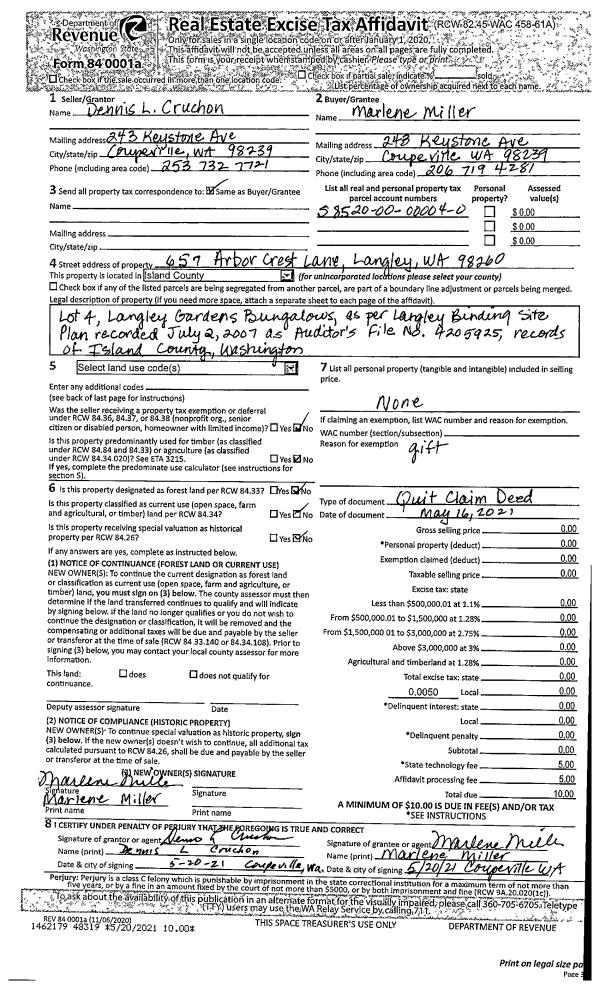 Department of
Revenue
Washington State
Form 84 0001a
Real Estate Excise Tax Affidavit (RCW 82.45 WAC 458-61A)
Only for sales in a single location code on or after January 1, 2020.
This affidavit will not be accepted unless all areas on all pages are fully completed.
This form is your receipt when stamped by cashier. Please type or print.
Check box if the sale occurred in more than one location code.
Check box if partial sale, indicate % sold.
List percentage of ownership acquired next to each name.
1 Seller/Grantor
Name Dennis L. Cruchon
Mailing address 243 Keystone Ave
City/state/zip Coupeville, WA 98239
Phone (including area code) 253 732 7721
2 Buyer/Grantee
Name Marlene Miller
Mailing address 243 Keystone Ave
City/state/zip Coupeville WA 98239
Phone (including area code) 206 719 4281
3 Send all property tax correspondence to: Same as Buyer/Grantee
Name
Mailing address
City/state/zip
List all real and personal property tax parcel account numbers
Personal property?
Assessed value(s)
S8520-00-00004-0
$ 0.00
$ 0.00
$ 0.00
4 Street address of property 657 Arbor Crest Lane, Langley, WA 98260
This property is located in Island County (for unincorporated locations please select your county)
Check box if any of the listed parcels are being segregated from another parcel, are part of a boundary line adjustment or parcels being merged.
Legal description of property (if you need more space, attach a separate sheet to each page of the affidavit).
Lot 4, Langley Gardens Bungalows, as per Langley Binding Site
Plan recorded July 2, 2007 as Auditor's File No. 4205925, records
of Island County, Washington
5 Select land use code(s)
Enter any additional codes
(see back of last page for instructions)
Was the seller receiving a property tax exemption or deferral
under RCW 84.36, 84.37, or 84.38 (nonprofit org., senior
citizen or disabled person, homeowner with limited income)? Yes No
Is this property predominantly used for timber (as classified
under RCW 84.84 and 84.33) or agriculture (as classified
under RCW 84.34.020)? See ETA 3215. Yes No
If yes, complete the predominate use calculator (see instructions for
section 5).
6 Is this property designated as forest land per RCW 84.33? Yes No
Is this property classified as current use (open space, farm
and agricultural, or timber) land per RCW 84.34? Yes No
Is this property receiving special valuation as historical
property per RCW 84.26? Yes No
If any answers are yes, complete as instructed below.
(1) NOTICE OF CONTINUANCE (FOREST LAND OR CURRENT USE)
NEW OWNER(S): To continue the current designation as forest land
or classification as current use (open space, farm and agriculture, or
timber) land, you must sign on (3) below. The county assessor must then
determine if the land transferred continues to qualify and will indicate
by signing below. If the land no longer qualifies or you do not wish to
continue the designation or classification, it will be removed and the
compensating or additional taxes will be due and payable by the seller
or transferor at the time of sale (RCW 84.33.140 or 84.34.108). Prior to
signing (3) below, you may contact your local county assessor for more
information.
This land: does does not qualify for
continuance.
Deputy assessor signature Date
(2) NOTICE OF COMPLIANCE (HISTORIC PROPERTY)
NEW OWNER(S): To continue special valuation as historic property, sign
(3) below. If the new owner(s) doesn't wish to continue, all additional tax
calculated pursuant to RCW 84.26, shall be due and payable by the seller
or transferor at the time of sale.
(3) NEW OWNER(S) SIGNATURE
Marlene Miller
Signature Signature
Marlene Miller
Print name Print name
7 List all personal property (tangible and intangible) included in selling
price.
None
If claiming an exemption, list WAC number and reason for exemption.
WAC number (section/subsection)
Reason for exemption
gift
Type of document Quit Claim Deed
Date of document May 16, 2021
Gross selling price 0.00
*Personal property (deduct) 0.00
Exemption claimed (deduct) 0.00
Taxable selling price 0.00
Excise tax: state
Less than $500,000.01 at 1.1% 0.00
From $500,000.01 to $1,500,000 at 1.28% 0.00
From $1,500,000.01 to $3,000,000 at 2.75% 0.00
Above $3,000,000 at 3% 0.00
Agricultural and timberland at 1.28% 0.00
Total excise tax: state 0.00
0.0050 Local 0.00
*Delinquent interest: state 0.00
Local 0.00
*Delinquent penalty 0.00
Subtotal 0.00
*State technology fee 5.00
Affidavit processing fee 5.00
Total due 10.00
A MINIMUM OF $10.00 IS DUE IN FEE(S) AND/OR TAX
*SEE INSTRUCTIONS
8 I CERTIFY UNDER PENALTY OF PERJURY THAT THE FOREGOING IS TRUE AND CORRECT
Signature of grantor or agent Dennis L Cruchon
Name (print) Dennis L Cruchon
Date & city of signing 5-20-21 Coupeville, Wa.
Signature of grantee or agent Marlene Miller
Name (print) Marlene Miller
Date & city of signing 5/20/21 Coupeville WA
Perjury: Perjury is a class C felony which is punishable by imprisonment in the state correctional institution for a maximum term of not more than
five years, or by a fine in an amount fixed by the court of not more than $5000, or by both imprisonment and fine (RCW 9A.20.020(1c)).
To ask about the availability of this publication in an alternate format for the visually impaired, please call 360-705-6705. Teletype
(TTY) users may use the WA Relay Service by calling 711.
REV 84 0001a (11/06/2020)
THIS SPACE TREASURER'S USE ONLY
DEPARTMENT OF REVENUE
1462179 48319 *5/20/2021 10.00*
Print on legal size pa
Page